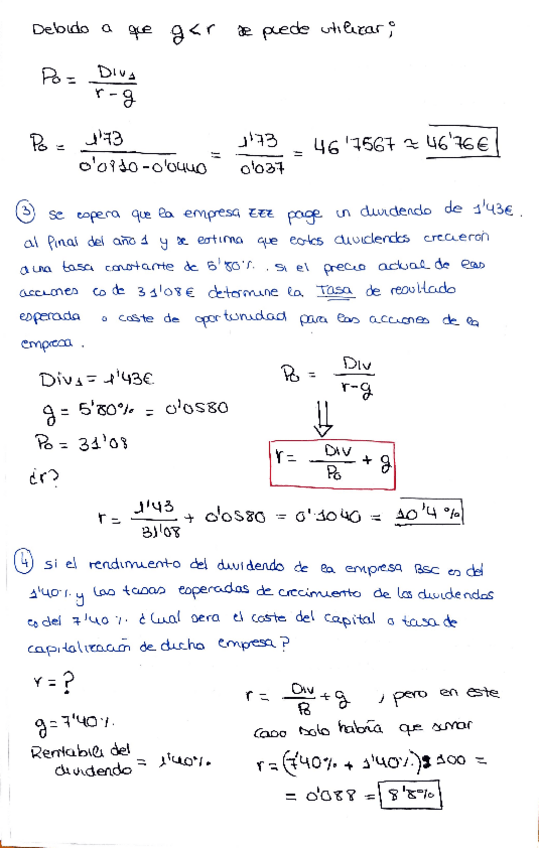 Debido a que g<r se puede utilizar;
Po = Div1 / r - g
Po = 1'73 / 0'0810-0'0440 = 1'73 / 0'037 = 46'7567 ≈ 46'76€
③ se espera que la empresa EEE page un dividendo de 1'43€.
al final del año 1 y se estima que estos dividendos crecieron
a una tasa constante de 5'80%. Si el precio actual de las
acciones es de 31'08€ determine la Tasa de resultado
esperada o coste de oportunidad para las acciones de la
empresa.
Div1 = 1'43€
g = 5'80% = 0'0580
Po = 31'08
¿r?
Po = Div / r-g
⇓
r = Div / Po + g
r = 1'43 / 31'08 + 0'0580 = 0'1040 = 10'4%
④ Si el rendimiento del dividendo de la empresa BSC es del
1'40% y las tasas esperadas de crecimiento de los dividendos
es del 7'40% ¿Cual sera el coste del capital o tasa de
capitalización de dicho empresa?
r = ?
g = 7'40%
Rentabili del dividendo = 1'40%
r = Div / Po + g , pero en este
caso solo habría que sumar
r = (7'40% + 1'40%) 100 =
= 0'088 = 8'8%